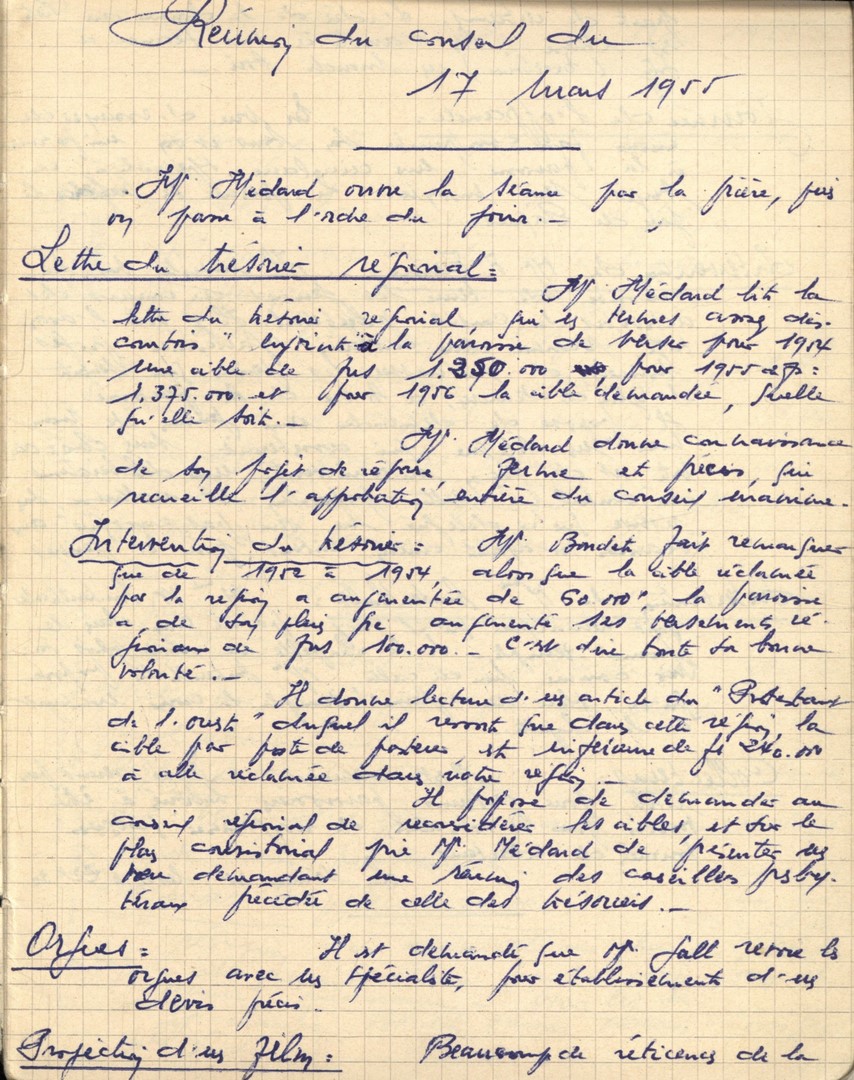 Réunion du conseil du
17 mars 1955
M. Médard ouvre la séance par la prière, puis
on passe à l'ordre du jour. _
Lettre du trésorier régional =
M. Médard lit la
lettre du trésorier régional, qui en termes assez dis-
courtois "enjoint" à la paroisse de verser pour 1954
une cible de frs 1.250.000 pour 1955 =
1.375.000. et pour 1956 la cible demandée, quelle
qu'elle soit. _
M. Médard donne connaissance
de son projet de réponse, ferme et précis, qui
recueille l'approbation entière du conseil unanime.
Intervention du trésorier = M. Bondet fait remarquer
que de 1952 à 1954, alors que la cible réclamée
par la région a augmentée de 60.000, la paroisse
a de son plein gré augmenté ses versements ré-
gionaux de frs 100.000. _ C'est dire toute sa bonne
volonté. _
Il donne lecture d'un article du "Protestant
de l'ouest" duquel il ressort que dans cette région, la
cible par poste de pasteur est inférieure de fs 240.000
à celle réclamée dans notre région. _
Il propose de demander au
conseil régional de reconsidérer les cibles, et sur le
plan consistorial prie M. Médard de présenter un
vœu demandant une réunion des conseillers presby-
téraux précédée de celle des trésoriers. _
Orgues = Il est demandé que M. Gall revoie les
orgues avec un spécialiste, pour établissements d'un
devis précis.
Projection d'un film = Beaucoup de réticences de la